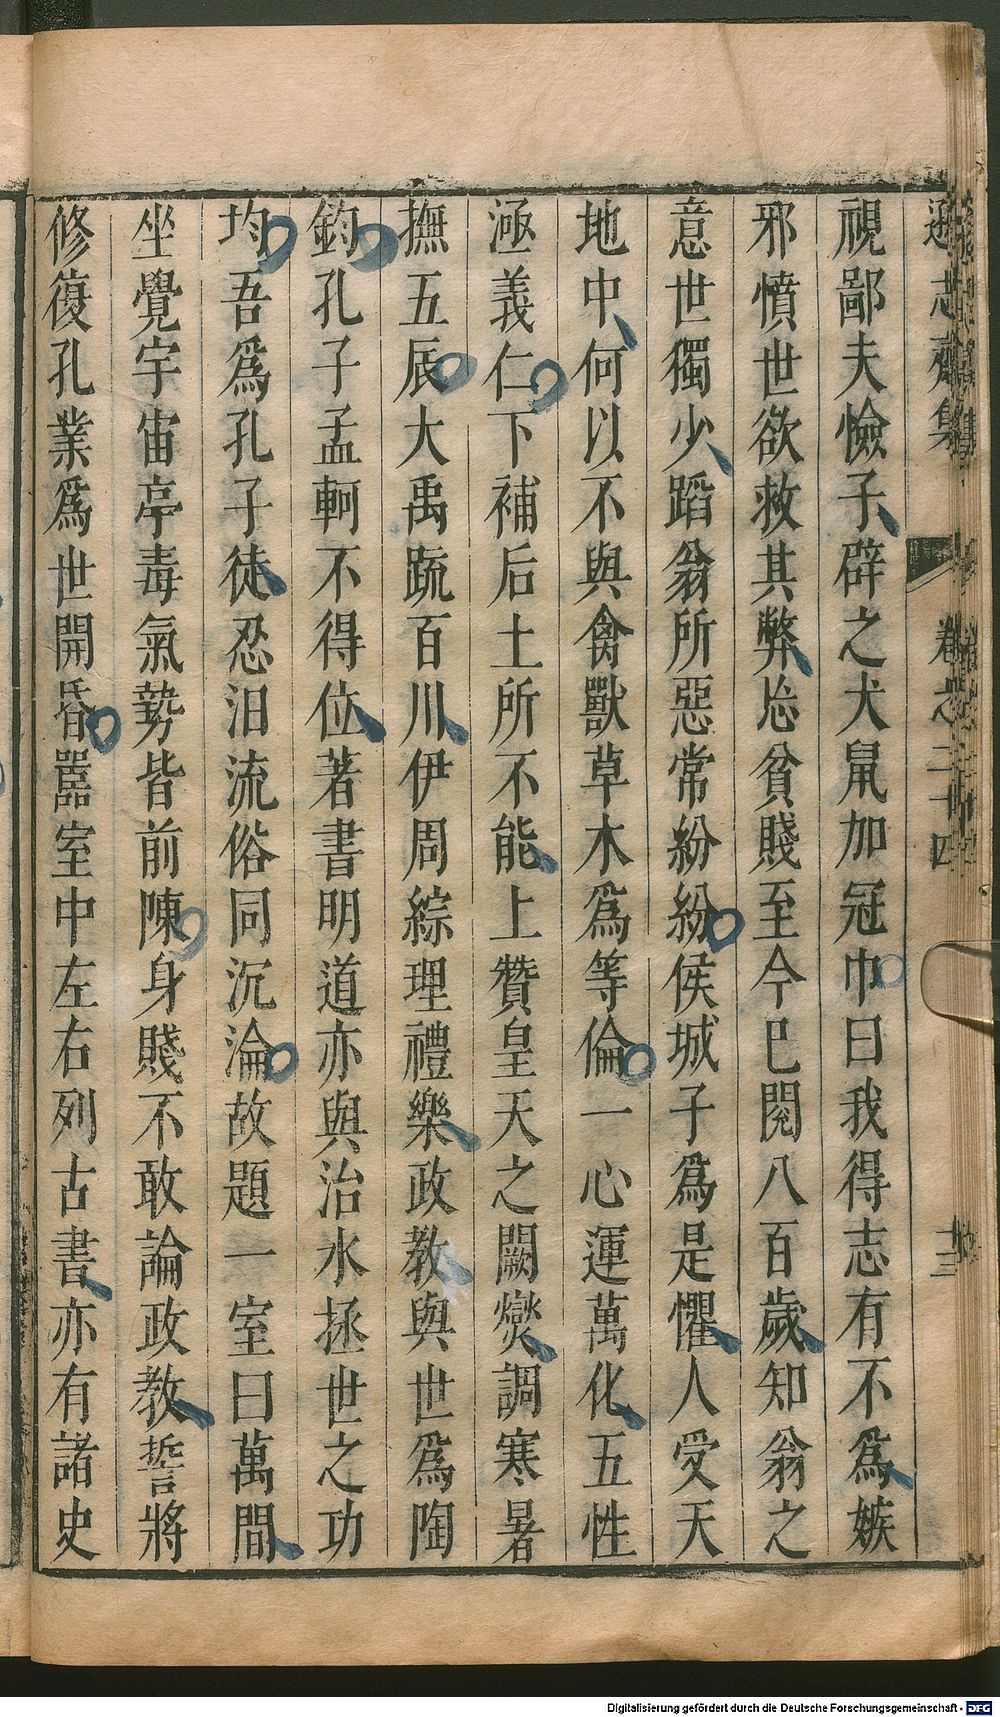 遜志齋集 卷之二十四 十三
視鄙夫憸子辟之犬鼠加冠巾曰我得志有不爲嫉
邪憤世欲救其弊㤀貧賤至今巳閱八百歲知翁之
意世獨少蹈翁所惡常紛紛侯城子爲是懼人受天
地中何以不與禽獸草木爲等倫一心運萬化五性
涵義仁下補后土所不能上贊皇天之闕燮調寒暑
撫五辰大禹疏百川伊周綜理禮樂政教與世爲陶
鈞孔子孟軻不得位著書明道亦與治水拯世之功
均吾爲孔子徒忍汨流俗同沉淪故題一室曰萬間
坐覺宇宙亭毒氣勢皆前陳身賤不敢論政教誓將
修復孔業爲世開昏嚚室中左右列古書亦有諸史
Digitalisierung gefördert durch die Deutsche Forschungsgemeinschaft - DFG